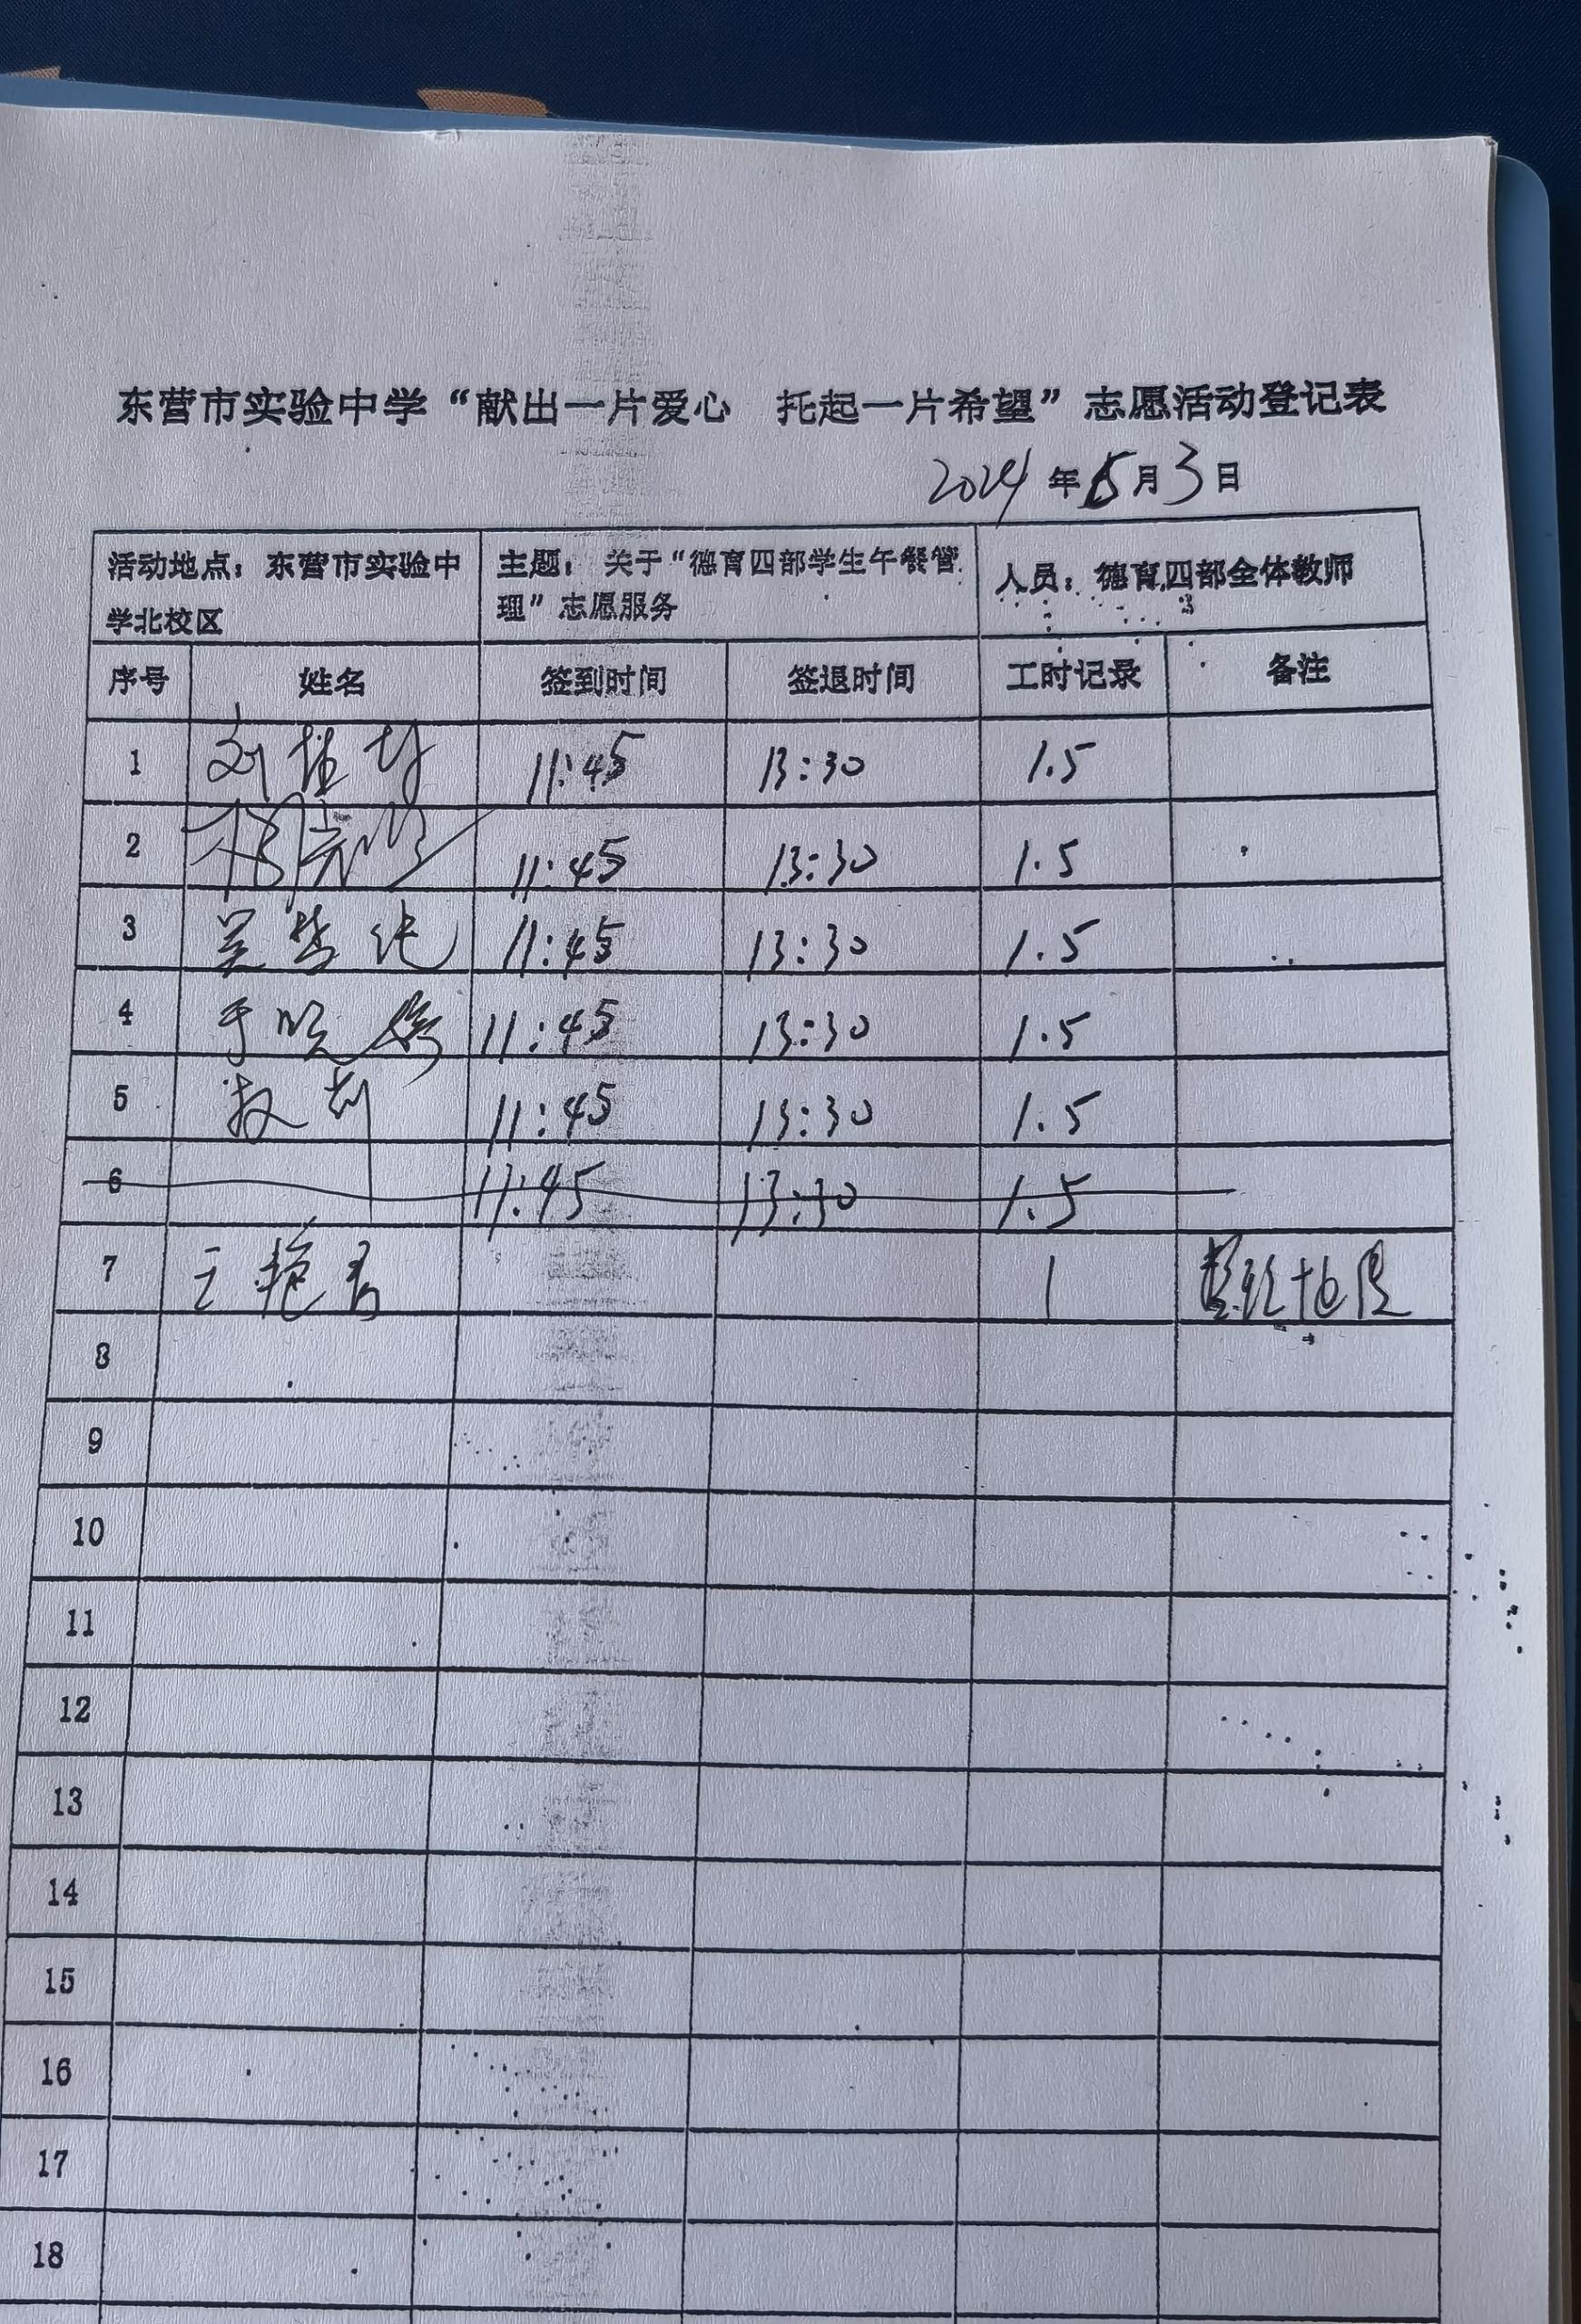 东营市实验中学“献出一片爱心 托起一片希望”志愿活动登记表
2024年6月3日
活动地点：东营市实验中学北校区 主题：关于“德育四部学生午餐管理”志愿服务 人员：德育四部全体教师
序号 姓名 签到时间 签退时间 工时记录 备注
1 11:45 13:30 1.5
2 11:45 13:30 1.5
3 11:45 13:30 1.5
4 于晓 11:45 13:30 1.5
5 11:45 13:30 1.5
6 11:45 13:30 1.5
7 王艳 1
8
9
10
11
12
13
14
15
16
17
18